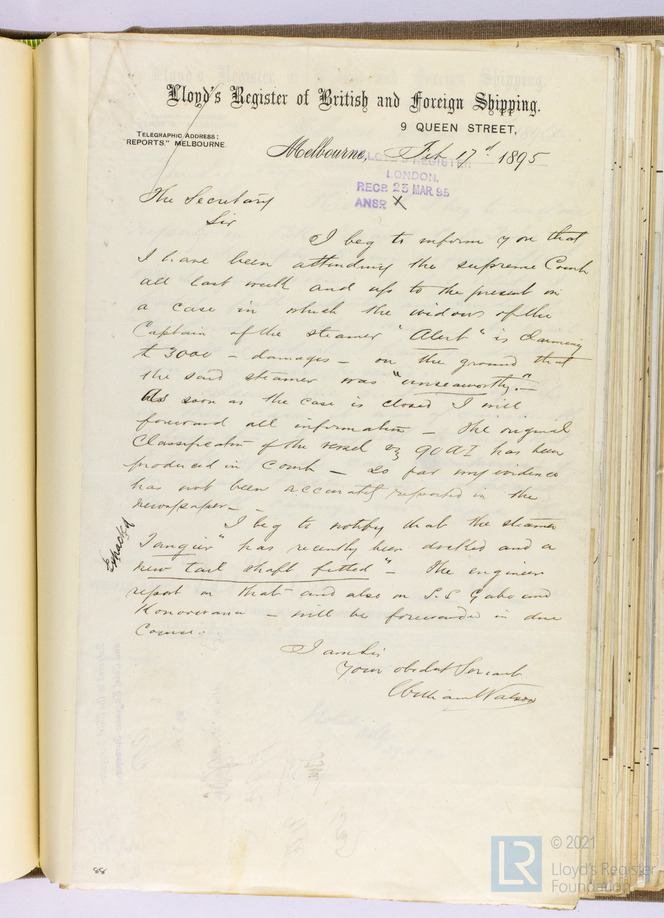 Lloyd's Register of British and Foreign Shipping.
9 QUEEN STREET,
TELEGRAPHIC ADDRESS:
"REPORTS." MELBOURNE
Melbourne, Feb 17th 1895
LLOYD'S REGISTER
LONDON.
RECD 23 MAR 95
ANSR X
The Secretary
Sir
I beg to inform you that
I have been attending the supreme Court
all last week and up to the present on
a case in which the widow of the
Captain of the steamer "Alert" is claiming
£ 3000 – damages – on the ground that
the said steamer was "unseaworthy."
As soon as the case is closed I will
forward all information – the original
Classification of the vessel viz 90 A1 has been
produced in Court – So far my evidence
has not been accurately reported in the
newspapers –
I beg to notify that the steamer
Tangier" has recently been docked and a
new tail shaft fitted" – the engineer
report on that and also on S.S Gabo and
Konoowarra – will be forwarded in due
Course.
Extracted
I am Sir
Your obedient Servant
William Watson
88
LR
© 2021
Lloyd's Register
Foundation